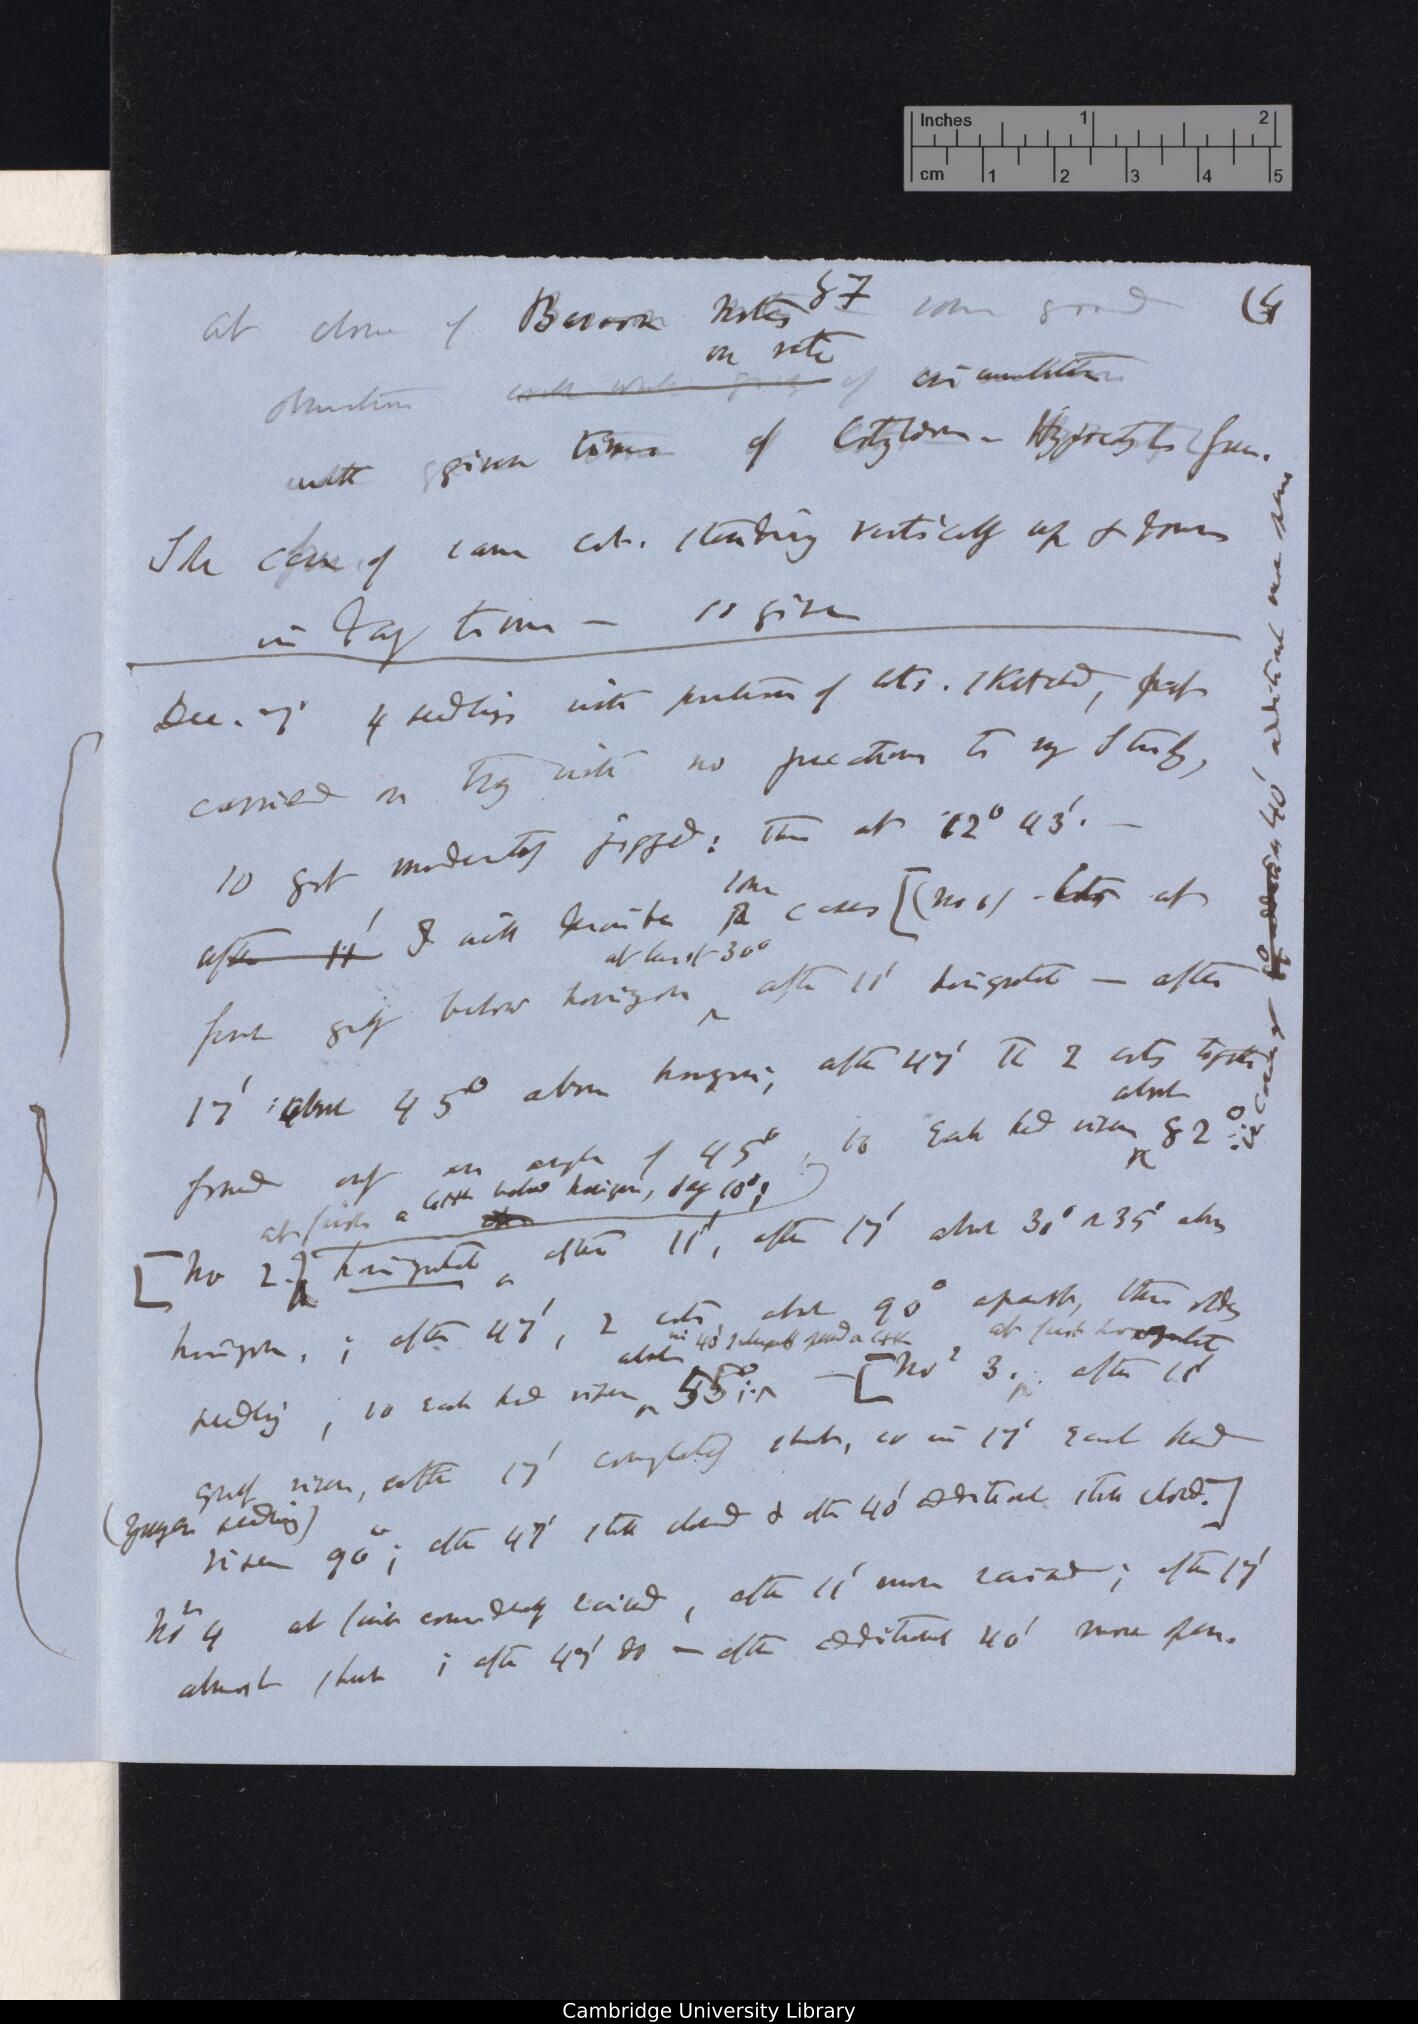 Inches 1 2
cm 1 2 3 4 5
(4
at close of Notes 87 some good
on rate
observations of circumnutation
with given times of Cotyledon - Hypocotyls from.
The case of same cots. standing vertically up & down
in Day time — is given
Dec. 27' 4 seedlings with position of cots. sketched,
carried on tray with no precautions to my Study,
so got moderately jogged: then at 12° 43'. —
after 11' I will describe cases [(No 1) - cots at
some
at least 30°
first below horizon after 11' horizontal — after
17' about 45° above horizon; after 47' the 2 cots together
about
formed only an angle of 45°, so each had risen 82°:
at first a little below horizon, say 10°;
[No 2.] horizontal after 11', after 17' about 30° or 35° above
horizon; after 47', 2 cots about 90° apart, this older
about in 40' opened a little
at first horizontal
seedling, so each had risen 55°: — [No 3. after 11'
risen, after 17' completely shut, so in 17' each had
(younger seedling)
risen 90°; after 47' still closed & after 40' additional still closed.]
No 4 at first considerably raised, after 11' more raised; after 17'
almost shut; after 47' do — after additional 40' more open.
40' additional
Cambridge University Library